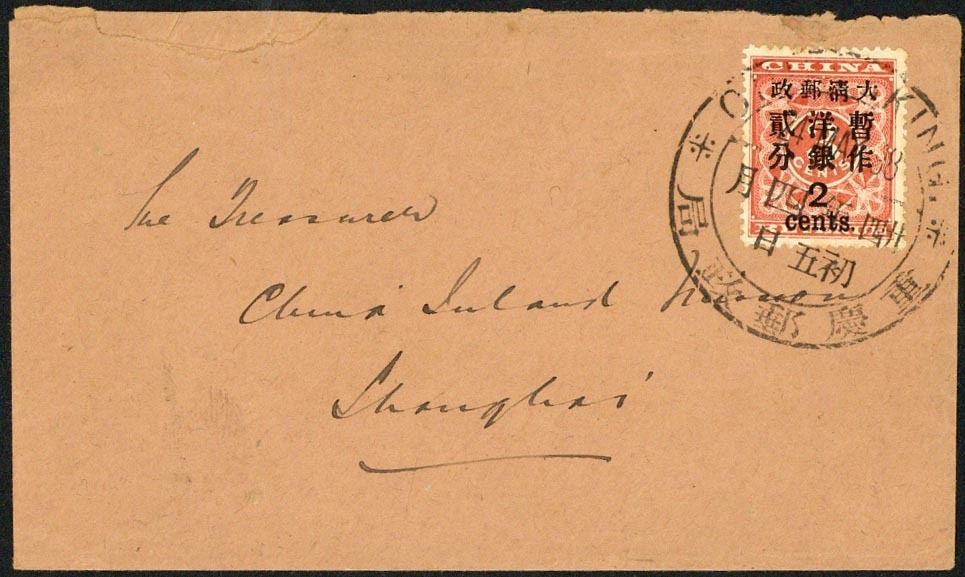 The Treasurer
China Inland Mission
Shanghai
CHINA
大清郵政
暫作
洋銀
貳分
2
cents.
CHUNGKING
24 MAY 98
廿四年四月
初五日
重慶郵政局